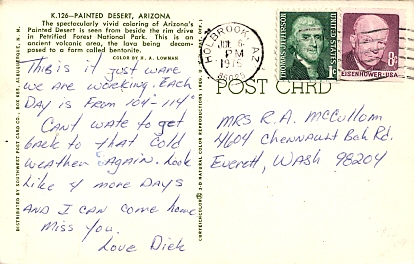 K.126—PAINTED DESERT, ARIZONA
The spectacularly vivid coloring of Arizona's
Painted Desert is seen from beside the rim drive
in Petrified Forest National Park. This is an
ancient volcanic area, the lava being decom-
posed to a form called bentonite.
COLOR BY R. A. LOWMAN
This is it just ware
we are working. Each
Day is from 104°-114°
Cant wate to get
back to that cold
weather again. Look
Like 4 more Days
And I can come home
Miss you.
Love Dick
DISTRIBUTED BY SOUTHWEST POST CARD CO., BOX 685, ALBUQUERQUE, N. M.
HOLBROOK, AZ
PM
1975
86025
THOMAS JEFFERSON
UNITED STATES
1c
8c
EISENHOWER·USA
POST CARD
MRS R. A. McCullom
4604 Chennault Bch Rd.
Everett, Wash 98204